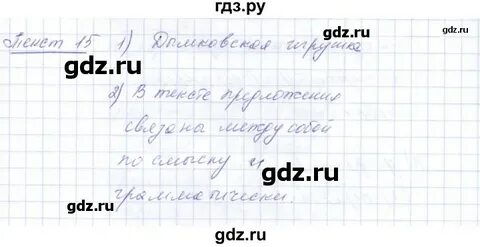 гдз.ру
Текст 15 1) Дымковская игрушка
gdz.ru gdz.ru
2) В тексте предложения
связана между собой
gdz.ru
по смыслу и gdz.ru
грамматически.
gdz.ru